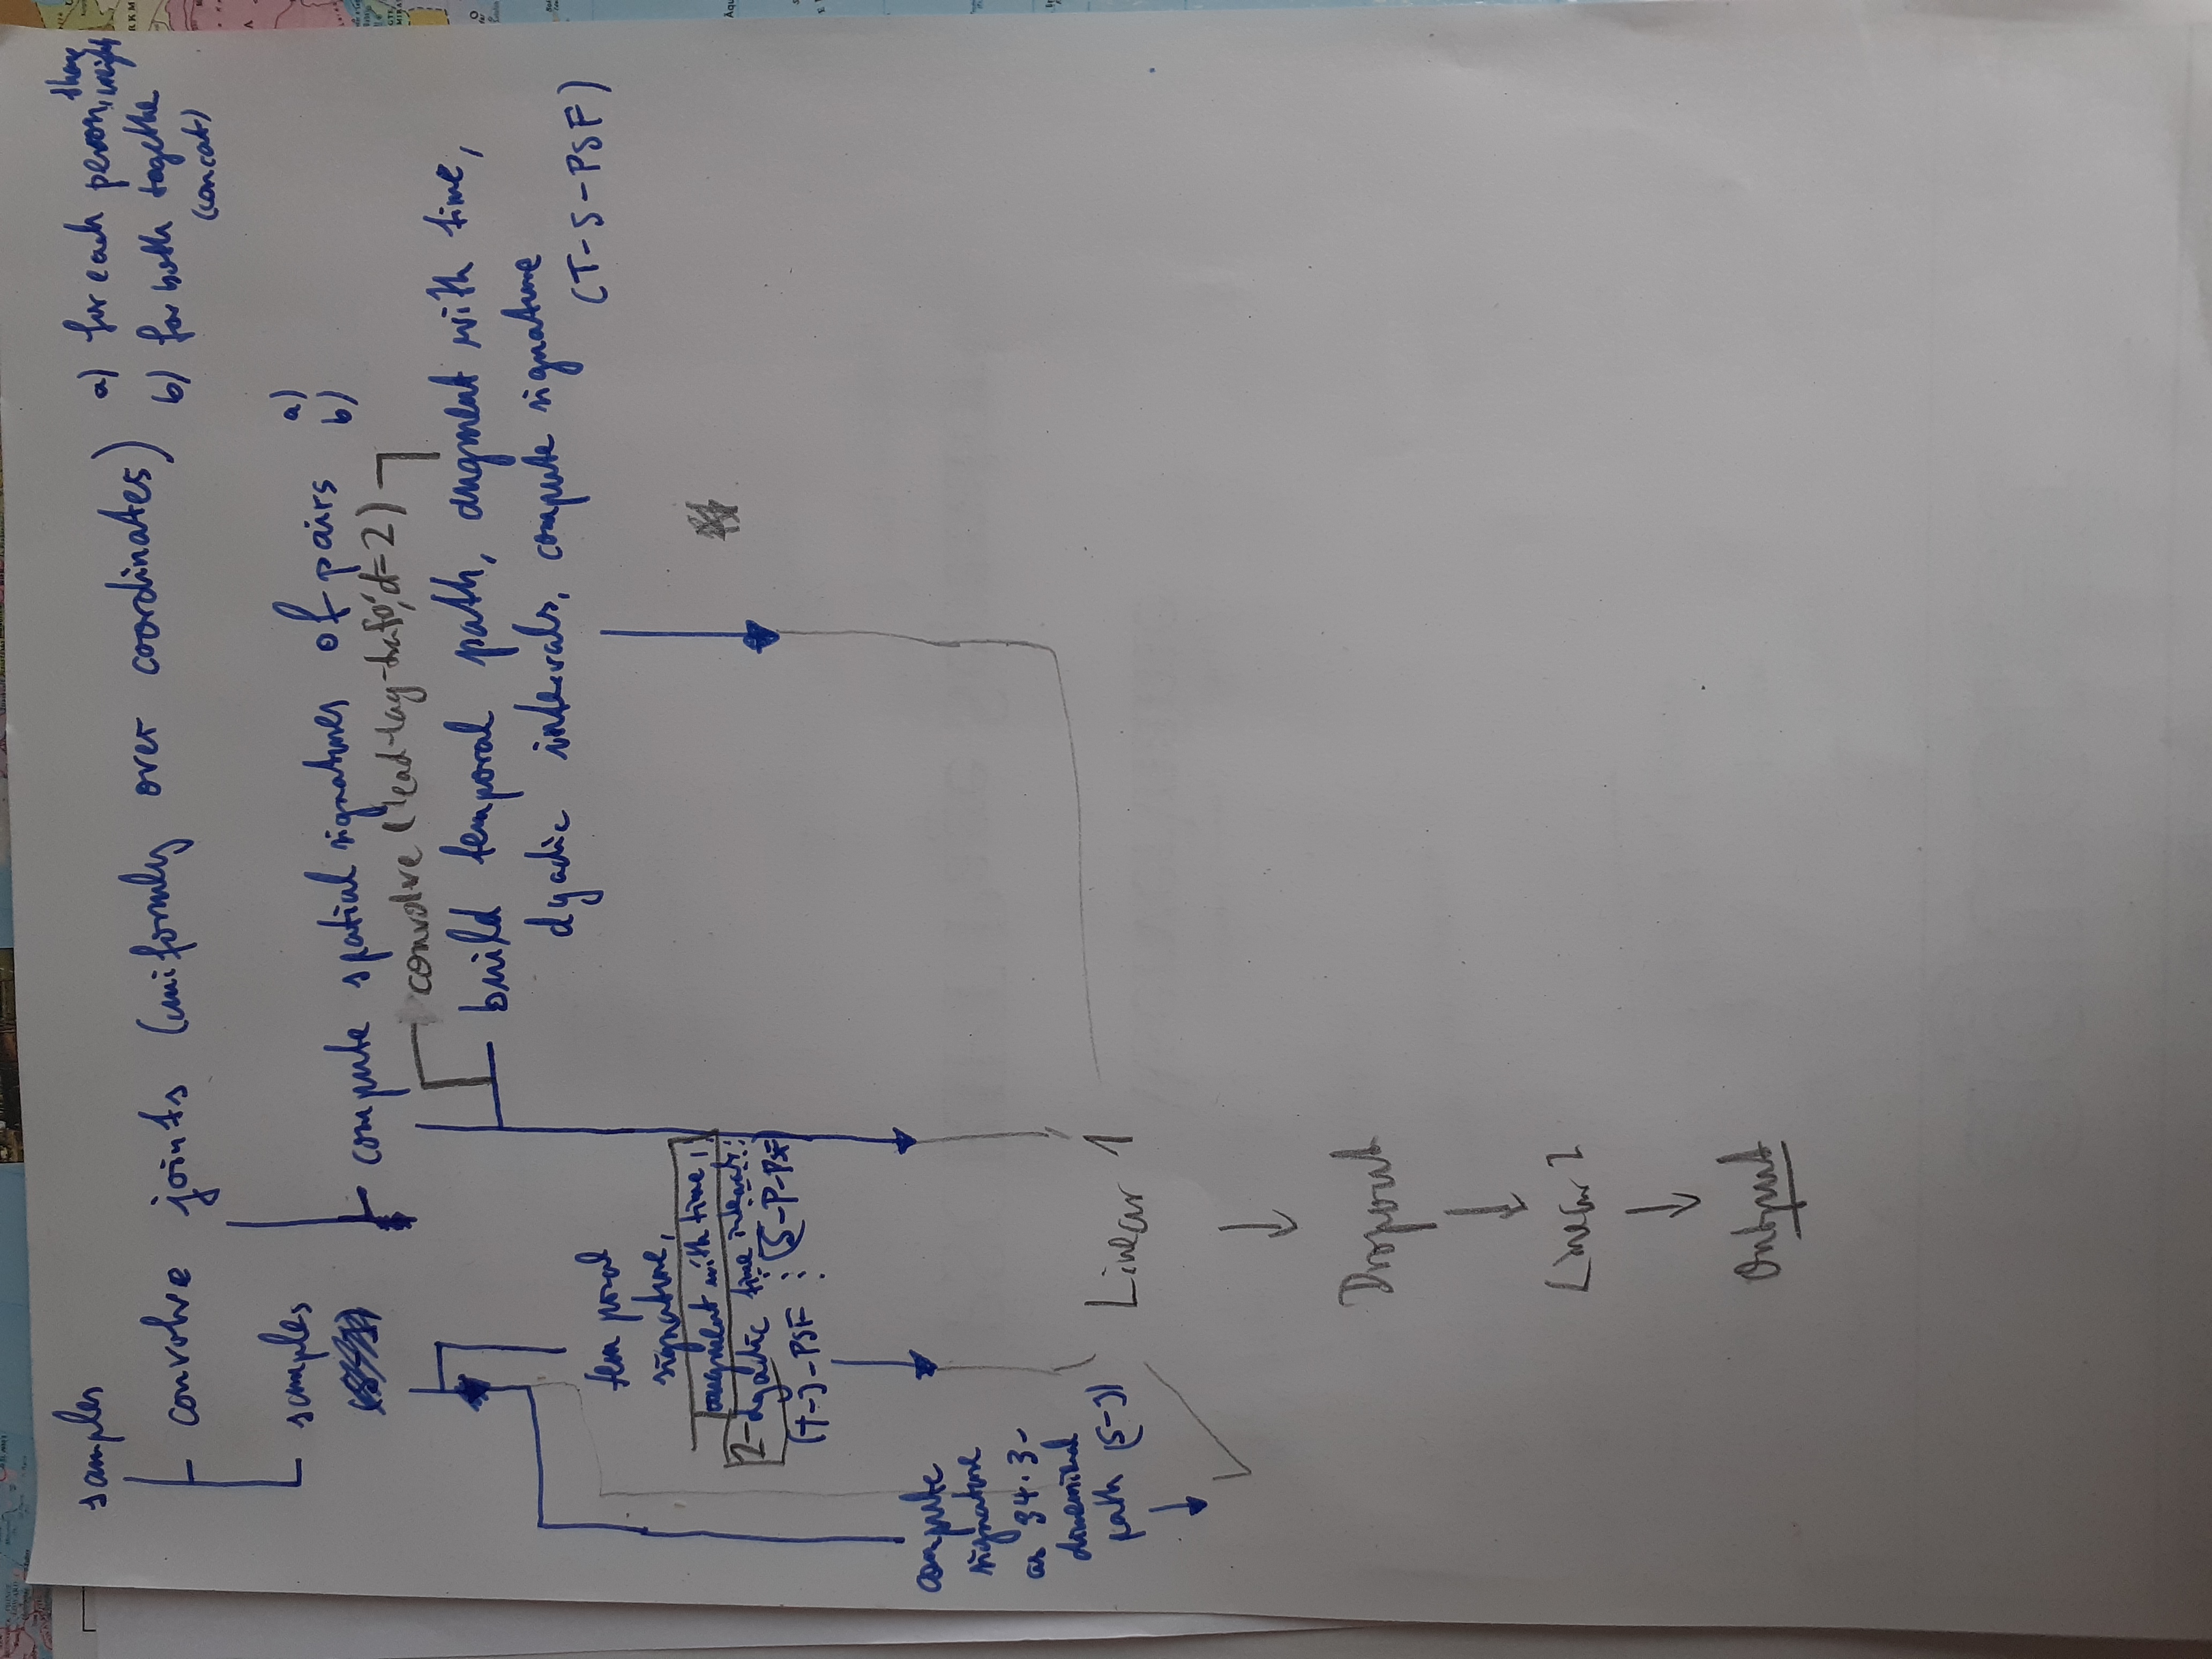 samples
convolve joints (uniformly over coordinates)
a) for each person, share weights
b) for both together
(concat)
samples
compute spatial signatures of pairs
a)
b)
convolve (lead-lag-trafo, d=2)
build temporal path, augment with time,
dyadic intervals, compute signature
(T-S-PSF)
temporal
signature,
augment with time,
2-dyadic time intervals
(T-J)-PSF
(S-P-PSF
compute
signature
as 34·3-
dimensional
path (S-J)
Linear 1
Dropout
Linear 2
Output